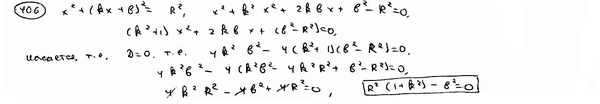 406 x² + (kx + b)² = R², x² + k² x² + 2kbx + b² - R² = 0,
(k² + 1) x² + 2kbx + (b² - R²) = 0,
касается, т.е. D = 0. т.е. 4k² b² - 4(k² + 1)(b² - R²) = 0,
4k²b² - 4(k²b² - 4k²R² + b² - R²) = 0,
4k²R² - 4b² + 4R² = 0, R² (1 + k²) - b² = 0